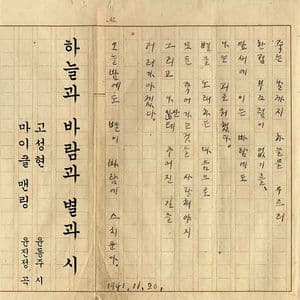 죽는 날까지 하늘을 우르러
한점 부끄럼이 없기를,
잎새에 이는 바람에도
나는 괴로워했다.
별을 노래하는 마음으로
모든 죽어가는것을 사랑해야지
그리고 나안테 주어진 길을
거러가야겠다.
오늘밤에도 별이 바람에 스치운다.
1941.11.20.
하늘과 바람과 별과 시
고성현 윤동주 시
마이클 맨링 윤진정 곡